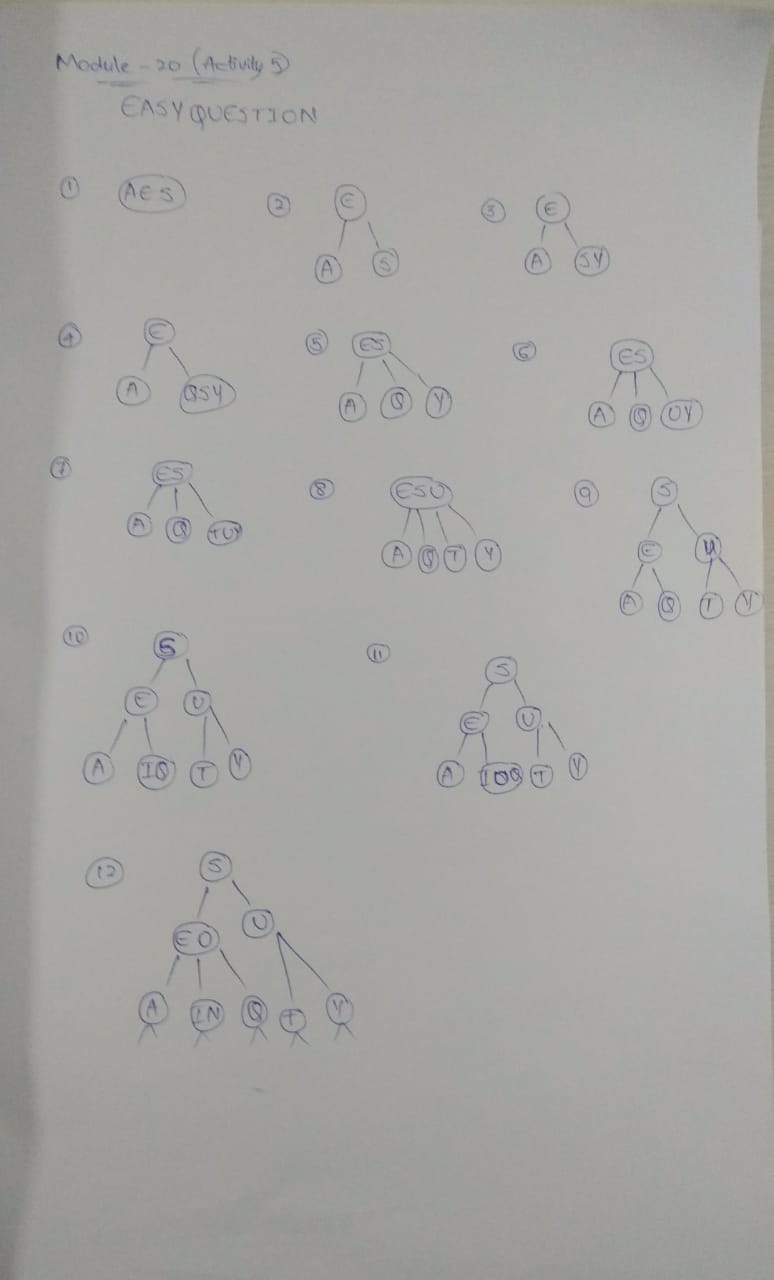 Module - 20 (Activity 5)
EASYQUESTION
① AES
② E
A S
③ E
A SY
④ E
A QSY
⑤ ES
A Q Y
⑥ ES
A Q UY
⑦ ES
A Q TUY
⑧ ESU
A Q T Y
⑨ S
E U
A Q T Y
⑩ S
E U
A IQ T Y
⑪ S
E U
A IOQ T Y
⑫ S
EO U
A IN Q T Y